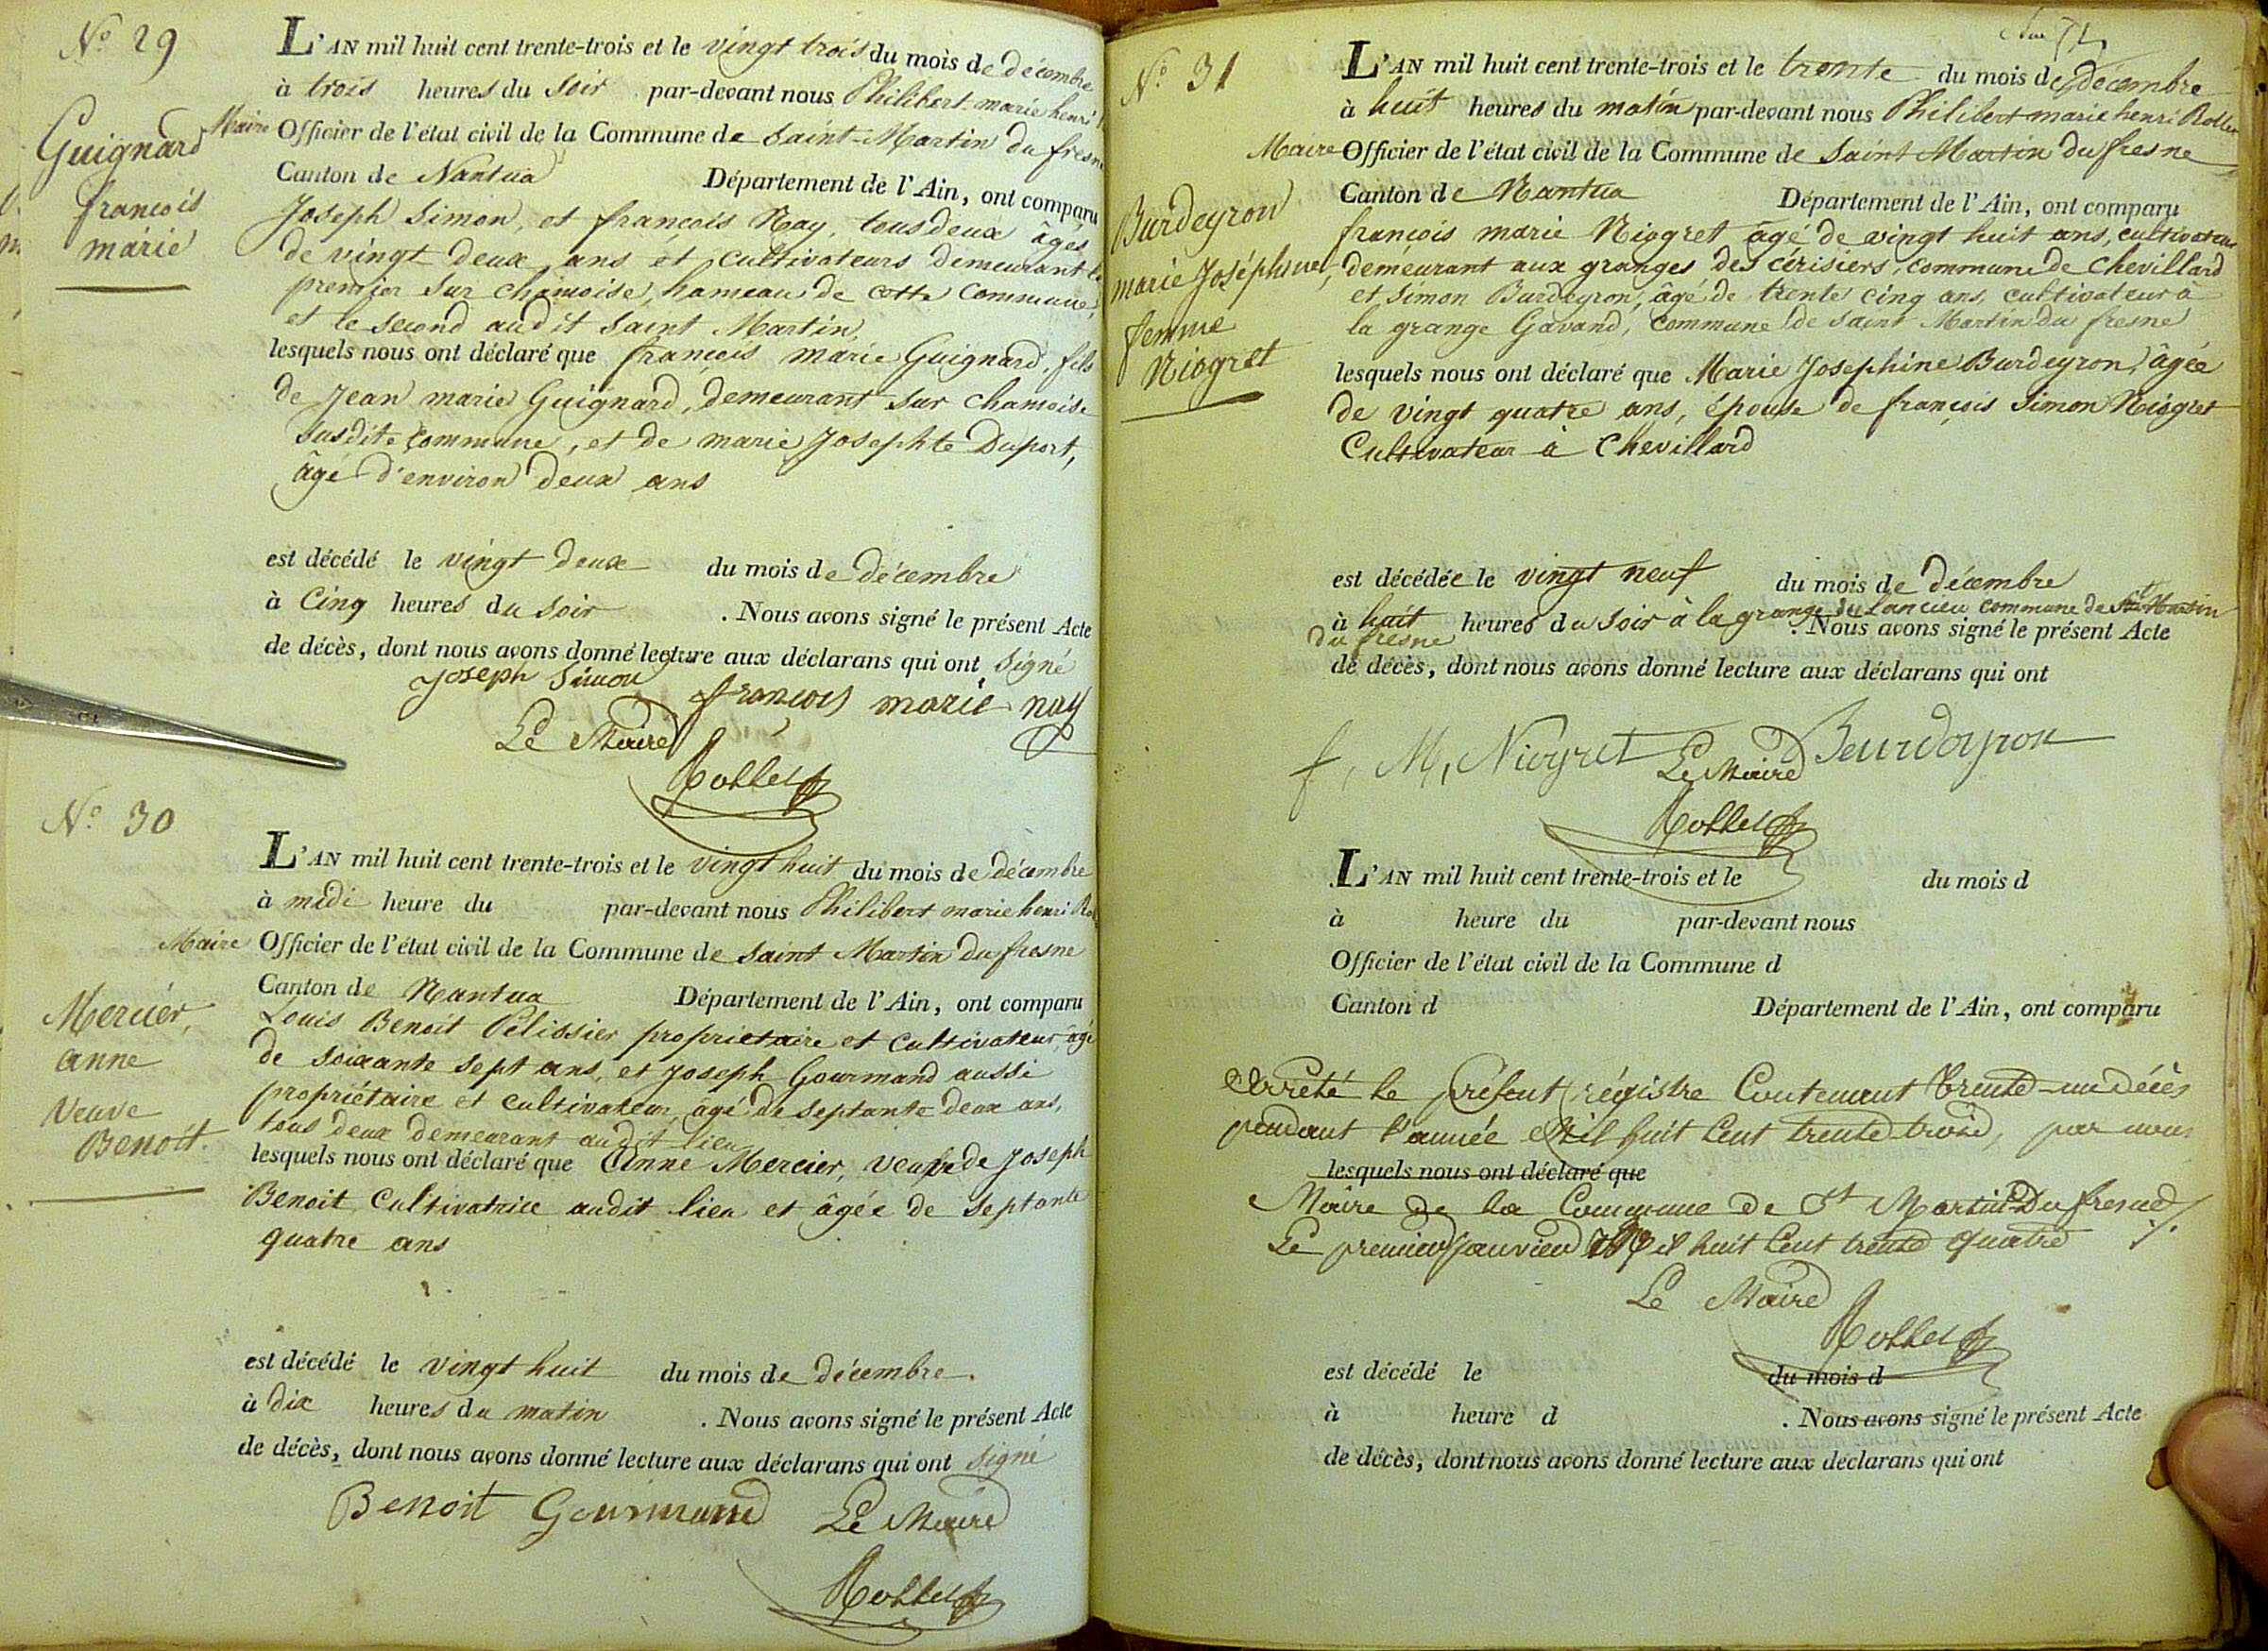 N.° 29
Guignard
françois
marie
L'AN mil huit cent trente-trois et le vingt trois du mois de décembre
à trois heures du soir par-devant nous Philibert marie henri
Maire Officier de l'état civil de la Commune de Saint-Martin du fresne
Canton de Nantua Département de l'Ain, ont comparu
Joseph Simon, et françois Nay, tous deux âgés
de vingt deux ans et cultivateurs demeurant le
premier sur chamoise, hameau de cette commune,
et le second audit Saint Martin,
lesquels nous ont déclaré que françois marie Guignard, fils
de Jean marie Guignard, demeurant sur chamoise
susdite commune, et de marie Josephte Duport,
âgé d'environ deux ans
est décédé le vingt deux du mois de décembre
à Cinq heures du soir . Nous avons signé le présent Acte
de décès, dont nous avons donné lecture aux déclarans qui ont signé
Joseph Simon
francois marie nay
Le Maire
Rollet
N.° 30
Mercier,
anne
veuve
Benoit.
L'AN mil huit cent trente-trois et le vingt huit du mois de décembre
à midi heure du par-devant nous Philibert marie henri
Maire Officier de l'état civil de la Commune de Saint Martin du fresne
Canton de Nantua Département de l'Ain, ont comparu
Louis Benoit Pélissier propriétaire et cultivateur, âgé
de soixante sept ans, et Joseph Gourmand aussi
propriétaire et cultivateur âgé de septante deux ans,
tous deux demeurant audit lieu
lesquels nous ont déclaré que Anne Mercier, veuve de Joseph
Benoit, Cultivatrice audit lieu et âgée de septante
quatre ans
est décédé le vingt huit du mois de décembre.
à dix heures du matin . Nous avons signé le présent Acte
de décès, dont nous avons donné lecture aux déclarans qui ont signé
Benoit Gourmand Le Maire
Rollet
N.° 31
Burdeyron
marie Joséphine,
femme
Niogret
L'AN mil huit cent trente-trois et le trente du mois de décembre
à huit heures du matin par-devant nous Philibert marie henri Rollet
Maire Officier de l'état civil de la Commune de Saint Martin du fresne
Canton de Nantua Département de l'Ain, ont comparu
françois marie Niogret âgé de vingt huit ans, cultivateur
demeurant aux granges des cérisiers, commune de Chevillard
et Simon Burdeyron, âgé de trente cinq ans, cultivateur à
la grange Gavand, commune de Saint Martin du fresne
lesquels nous ont déclaré que Marie Josephine Burdeyron, âgée
de vingt quatre ans, épouse de françois Simon Niogret
Cultivateur à Chevillard
est décédée le vingt neuf du mois de décembre
à huit heures du soir à la grange de Lancieu commune de St Martin
du fresne . Nous avons signé le présent Acte
de décès, dont nous avons donné lecture aux déclarans qui ont
f, M, Niogret Le Maire Burdeyron
Rollet
L'AN mil huit cent trente-trois et le du mois d
à heure du par-devant nous
Officier de l'état civil de la Commune d
Canton d Département de l'Ain, ont comparu
Arreté le présent régistre Contenant trente-un décès
pendant l'année Mil huit Cent trente trois, par nous
lesquels nous ont déclaré que
Maire de la Commune de St Martin-Du fresne
Le premier janvier Mil huit Cent trente quatre ./.
Le Maire
Rollet
est décédé le du mois d
à heure d . Nous avons signé le présent Acte
de décès, dont nous avons donné lecture aux déclarans qui ont